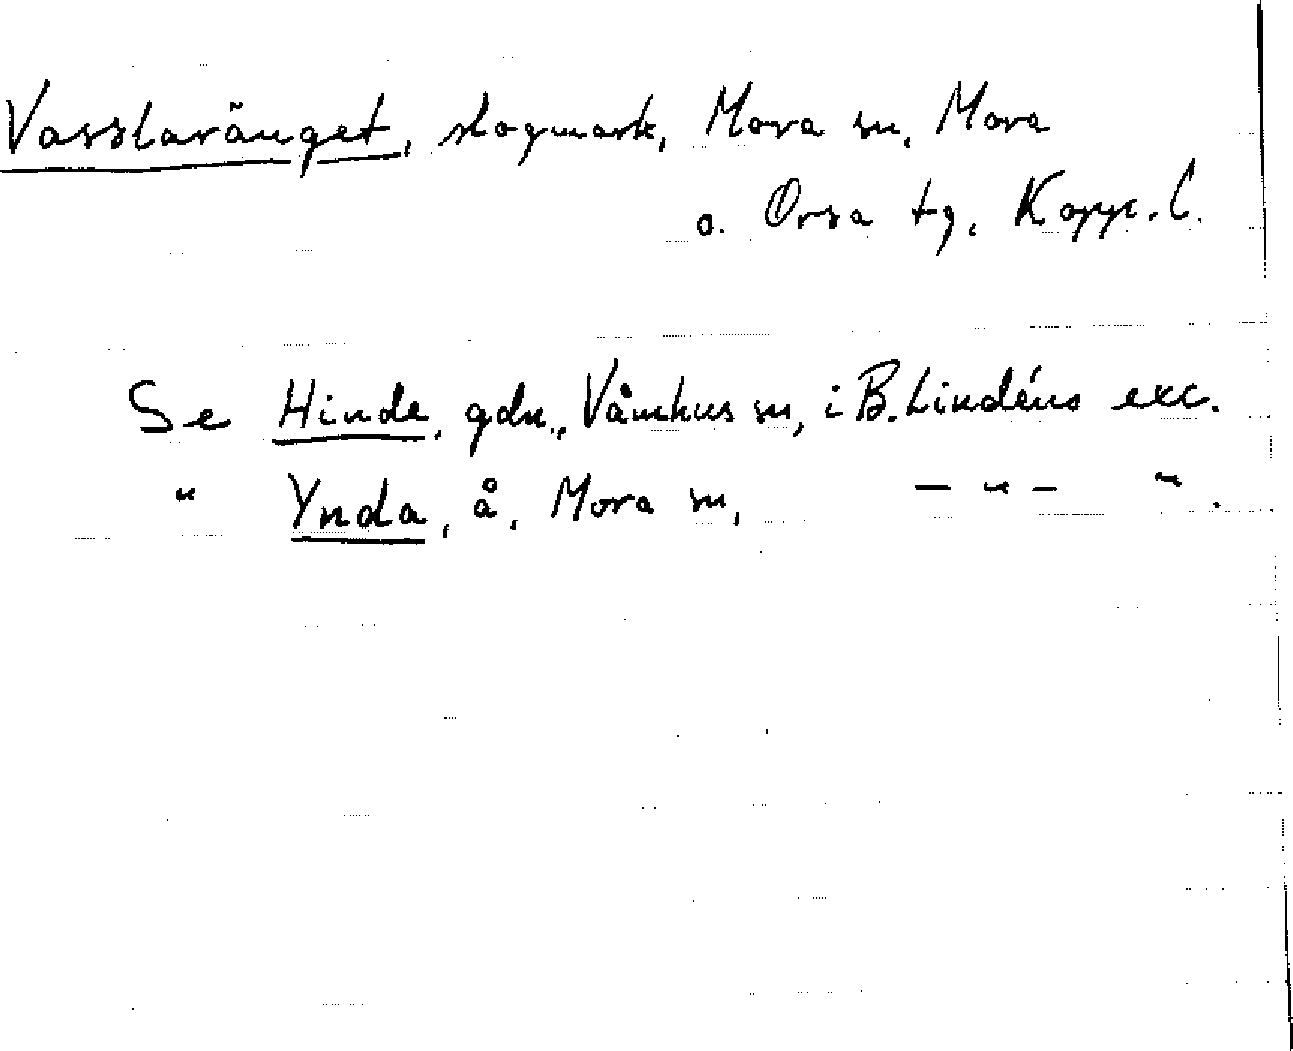 Vasslaränget, skogmark, Mora sn, Mora
o. Orsa tg, Kopp. l.
Se Hinde, gdn., Våmhus sn, i B. Lindéns exc.
" Ynda, å, Mora sn, — " — ".